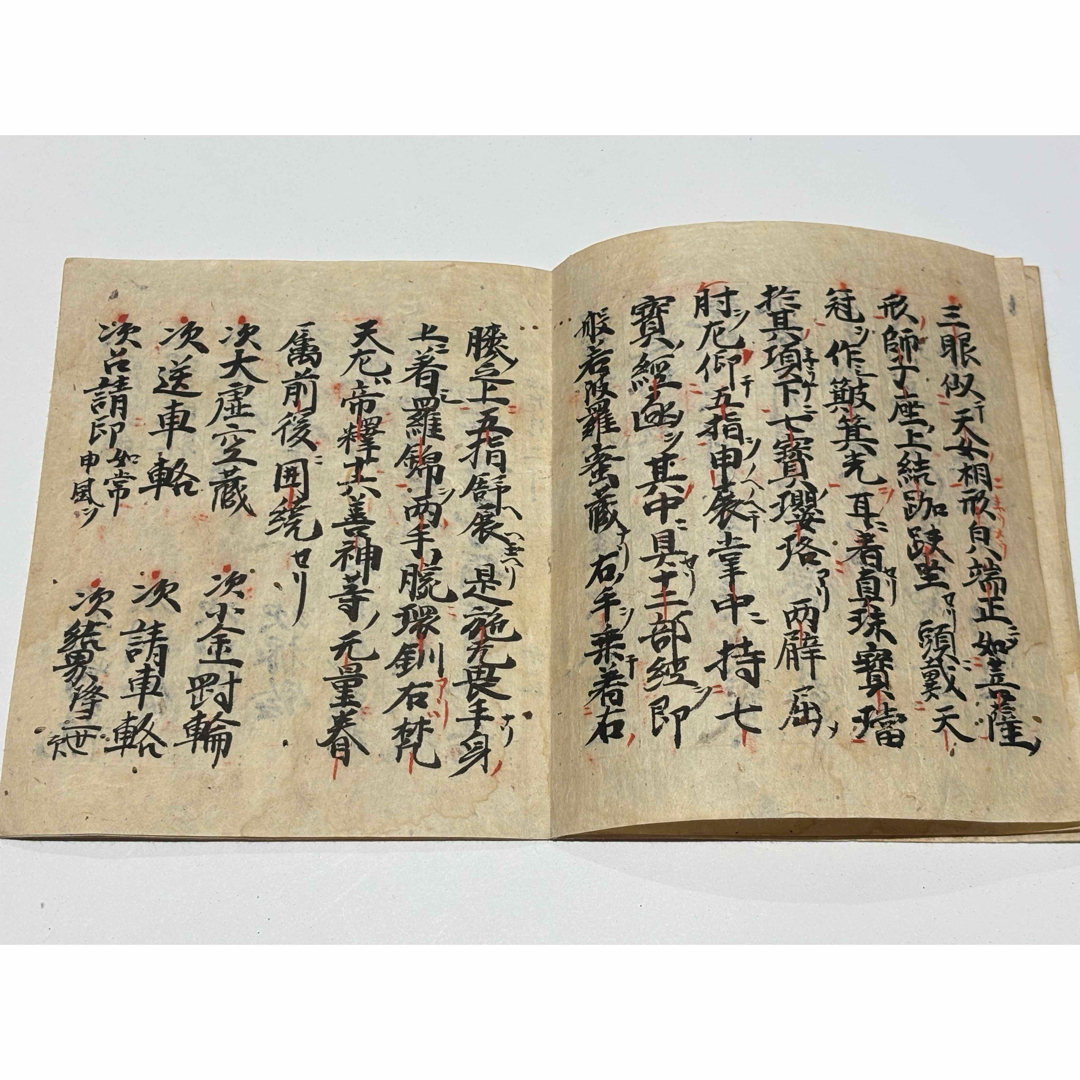 三眼似天女相形自端正如菩薩ノ
形師子座上結跏趺坐頭戴天
冠作皾箕光耳着真珠寶璫
於其項下七寶瓔珞両臂屈
肘左仰五指申展掌中持七
寶經凾其中具十二部経即
般若波羅蜜蔵右手乗着右
膝上五指舒展是施无畏手身
上着羅錦両手腕環釧右梵
天左帝釋十六善神等无量眷
属前後囲繞セリ
次大虚空蔵 次小金剛輪
次送車輅 次請車輅
次召請印如常申風シ 次結界降三世